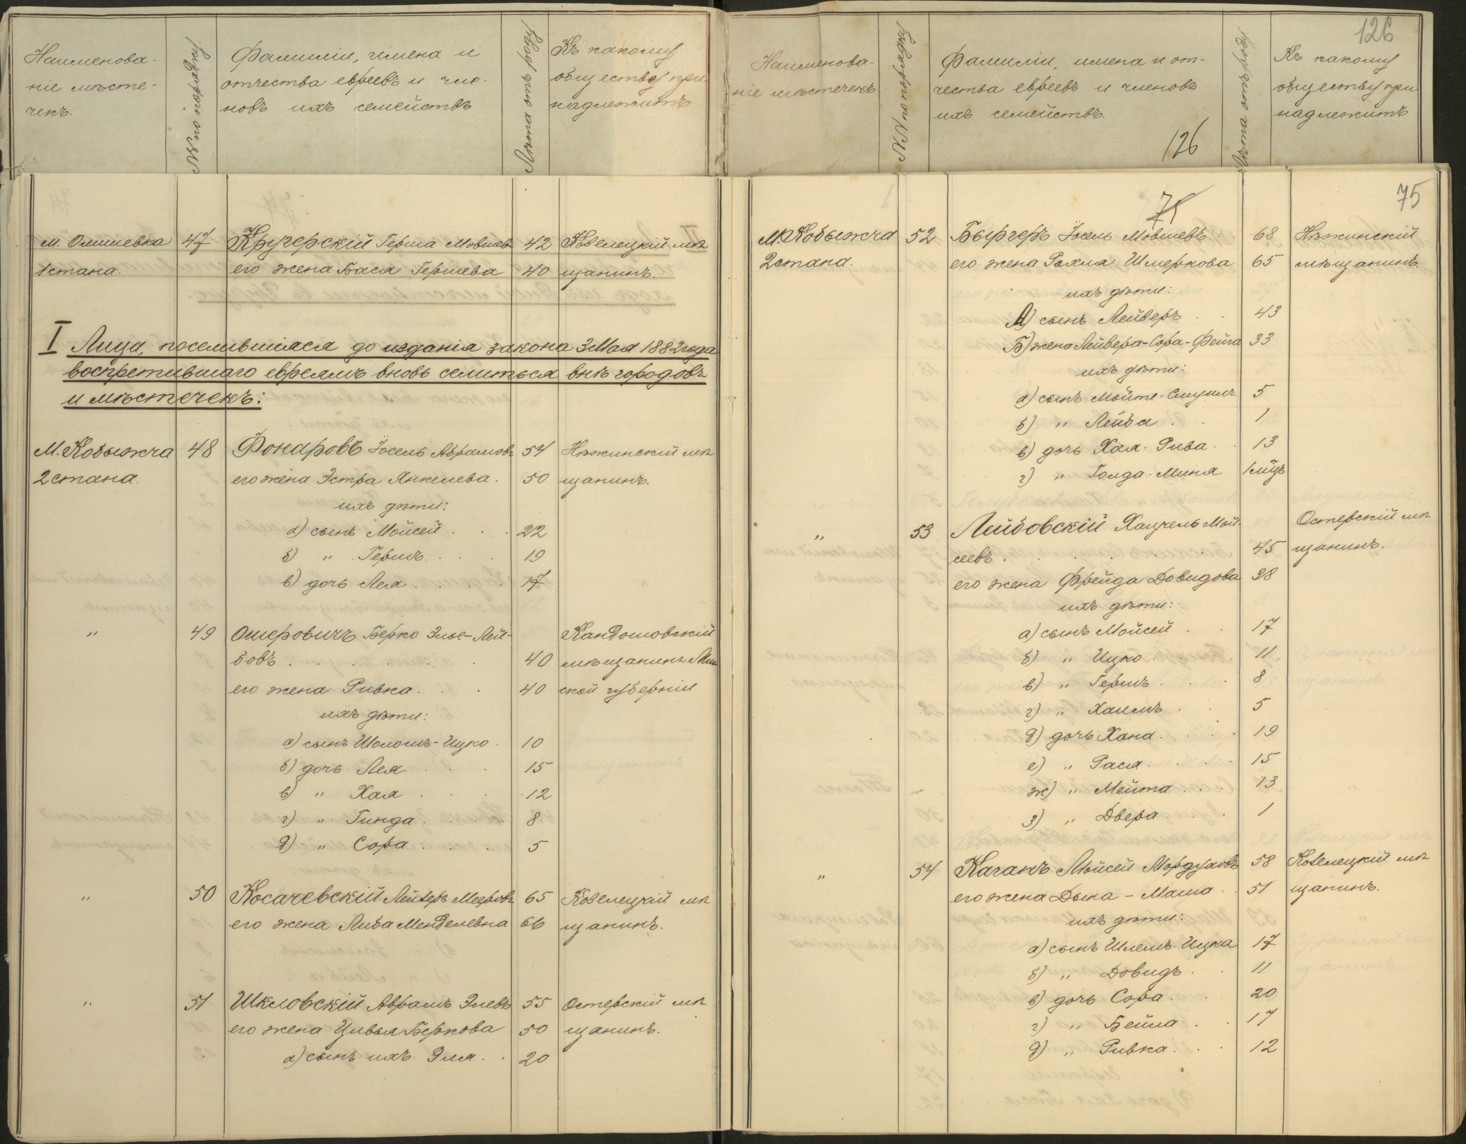 Наименова-
ніе мѣсте-
чекъ.
№№ по порядку
Фамиліи, имена и
отчества евреевъ и чле-
новъ ихъ семействъ
Лѣта отъ роду
Къ какому
обществу при-
надлежитъ
м. Олишевка 47 Кучерскій Герша Мовшев. 42 Козелецкій мѣ-
1 стана. его жена Бася Гершева 40 щанинъ.
I Лица, поселившіяся до изданія закона 3 Мая 1882 года
воспретившаго евреямъ вновь селиться внѣ городовъ
и мѣстечекъ:
М. Кобыжча 48 Фонаровъ Іосель Абрамов. 54 Нѣжинскій мѣ-
2 стана его жена Эстра Янкелева. 50 щанинъ.
ихъ дѣти:
а) сынъ Мойсей 22
б) " Гершъ 19
в) дочь Лея 17
" 49 Ошеровичъ Берко Элье-Лей- Кандошовскій
бовъ 40 мѣщанинъ
его жена Ривка 40 ской губерніи
ихъ дѣти:
а) сынъ Шоломъ-Ицко 10
б) дочь Лея 15
в) " Хая 12
г) " Гинда 8
д) " Сора 5
" 50 Косачевскій Лейзеръ Мееров. 65 Козелецкій мѣ-
его жена Либа Менделевна 66 щанинъ.
" 51 Шкловскій Абрамъ Элевъ 55 Остерскій мѣ-
его жена Цивья Беркова 50 щанинъ.
а) сынъ ихъ Эля 20
126
Наименова-
ніе мѣстечекъ
№№ по порядку
Фамиліи, имена и от-
чества евреевъ и членовъ
ихъ семействъ.
126
Лѣта отъ роду
Къ какому
обществу при-
надлежитъ
75
75
М. Кобыжча 52 Быргеръ Іосель Мовшевъ 68 Нѣжинскій
2 стана. его жена Рыхля Шмеркова 65 мѣщанинъ.
ихъ дѣти:
А) сынъ Лейзеръ 43
Б) жена Лейзера-Сора-Фейга 33
ихъ дѣти:
а) сынъ 5
б) " Лейба 1
в) дочь Хая-Рива 13
г) " Голда-Миня 1 мѣц.
" 53 Лейбовскій Хацкель Мой- Остерскій мѣ-
сеевъ 45 щанинъ.
его жена Фрейда Довидова 38
ихъ дѣти:
а) сынъ Мойсей 17
б) " Ицко 11
в) " Гершъ 8
г) " Хаимъ 5
д) дочь Хана 19
е) " Рася 15
ж) " Мейта 13
з) " Двера 1
" 54 Каганъ Мойсей Мордуховъ 58 Козелецкій мѣ-
его жена Дына-Маша 51 щанинъ.
ихъ дѣти:
а) сынъ Шлема Ицка 17
б) " Довидъ 11
в) дочь Сора 20
г) " Бейла 17
д) " Ривка 12